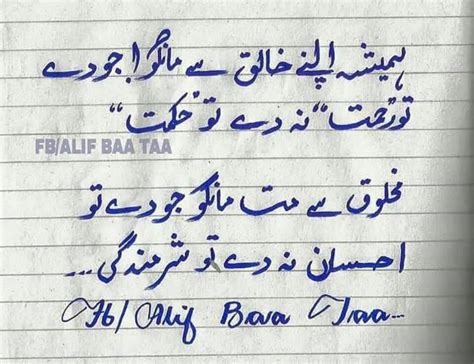 ہمیشہ اپنے خالق سے مانگو! جو دے
تو "رحمت" نہ دے تو "حکمت"
FB/ALIF BAA TAA
مخلوق سے مت مانگو جو دے تو
احسان نہ دے تو شرمندگی...
Fb/ Alif Baa Taa...